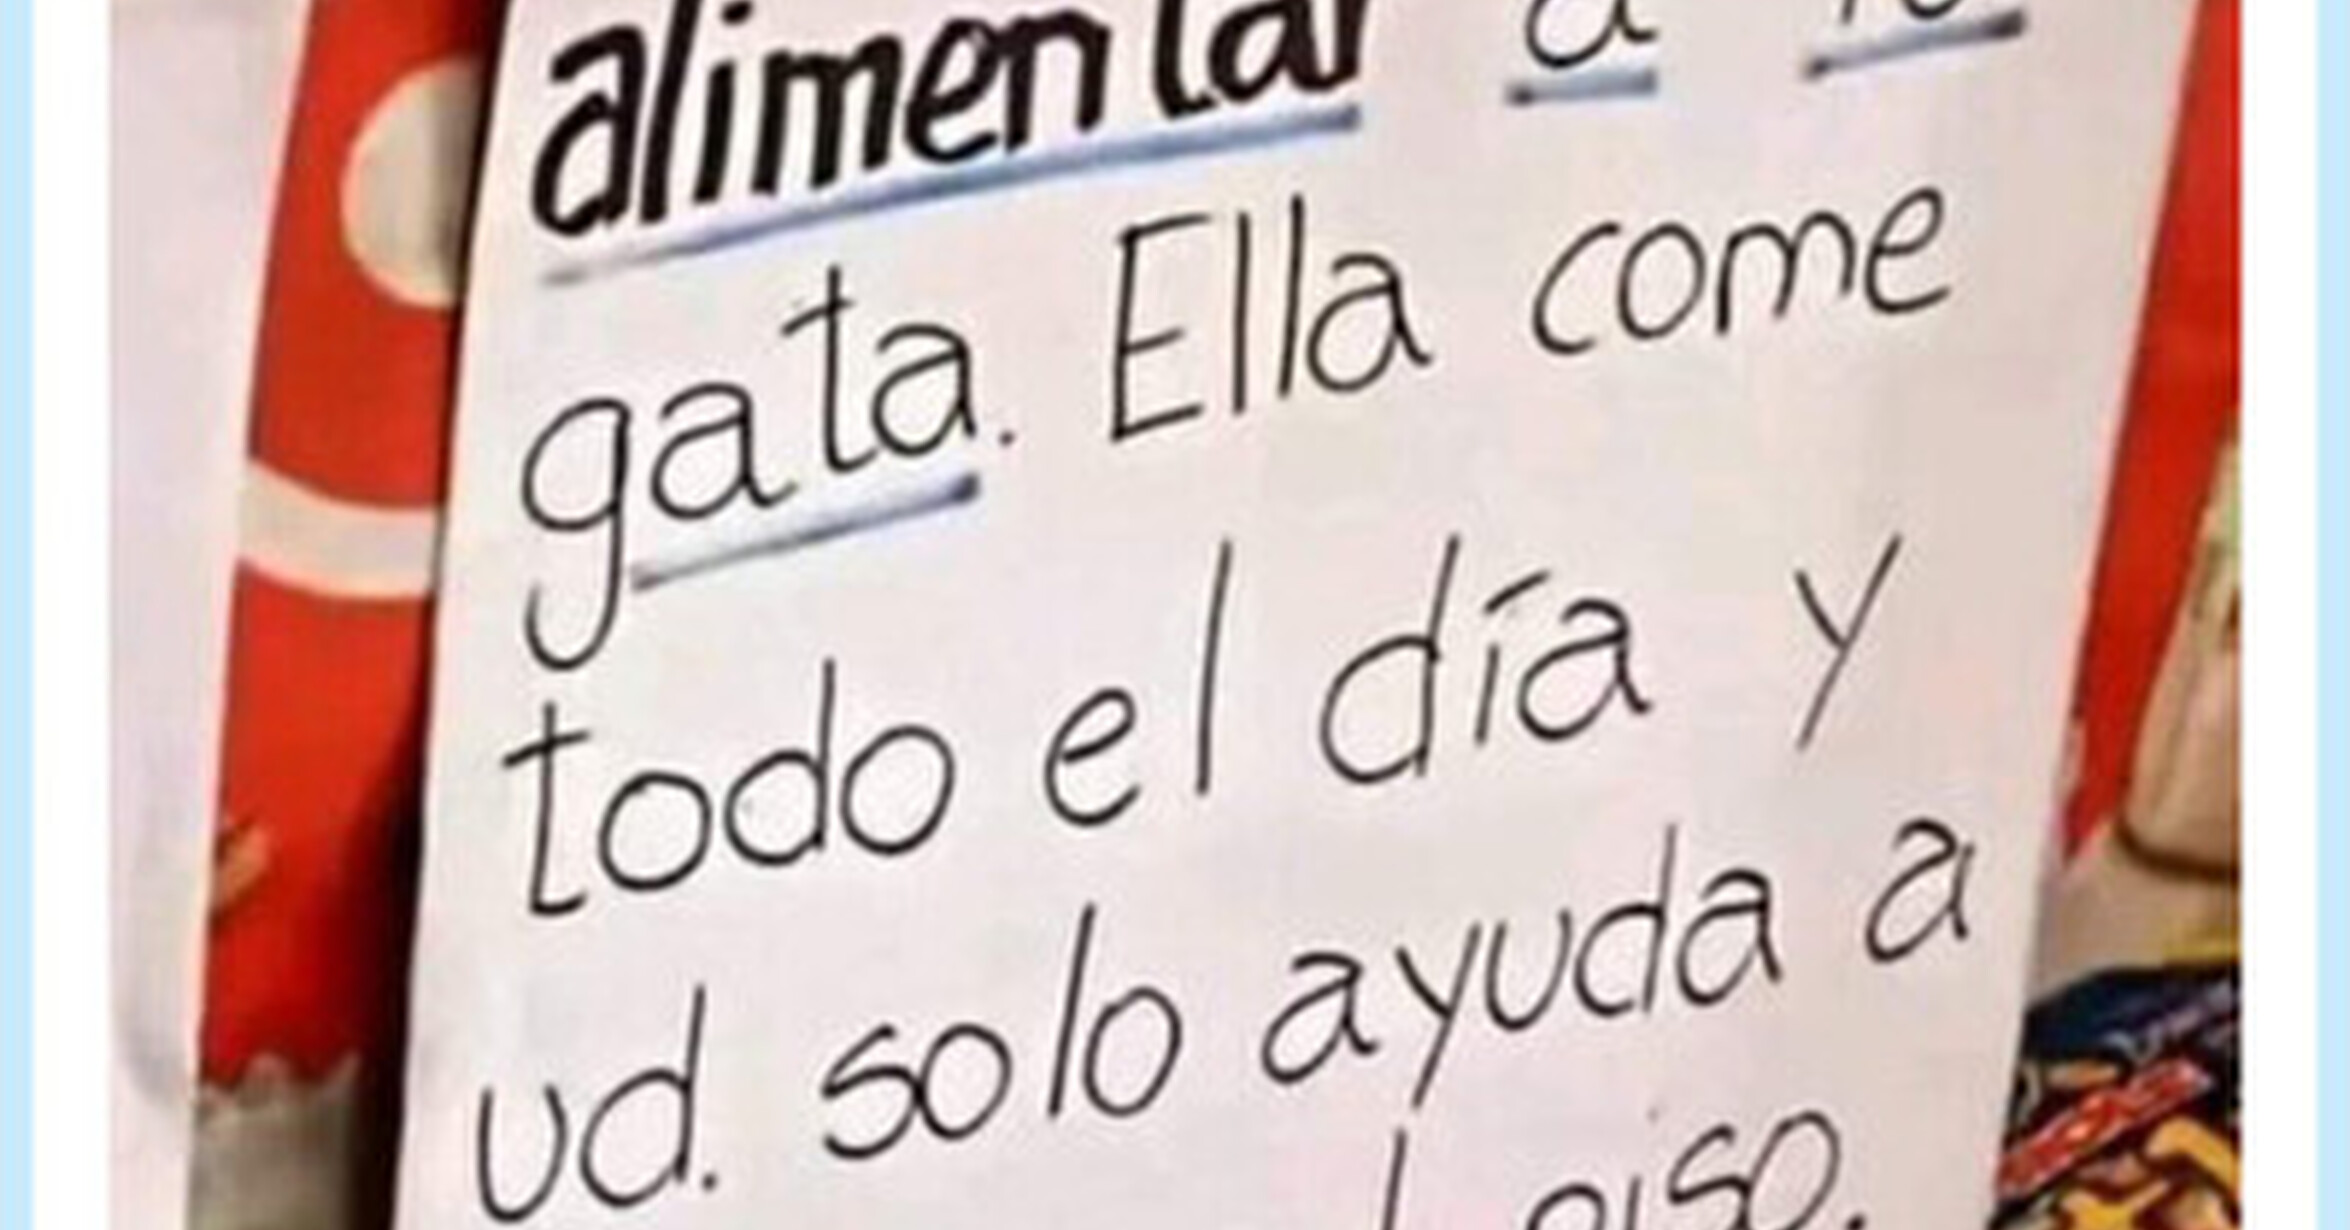 alimentar a la
gata. Ella come
todo el día y
ud. solo ayuda a
piso.